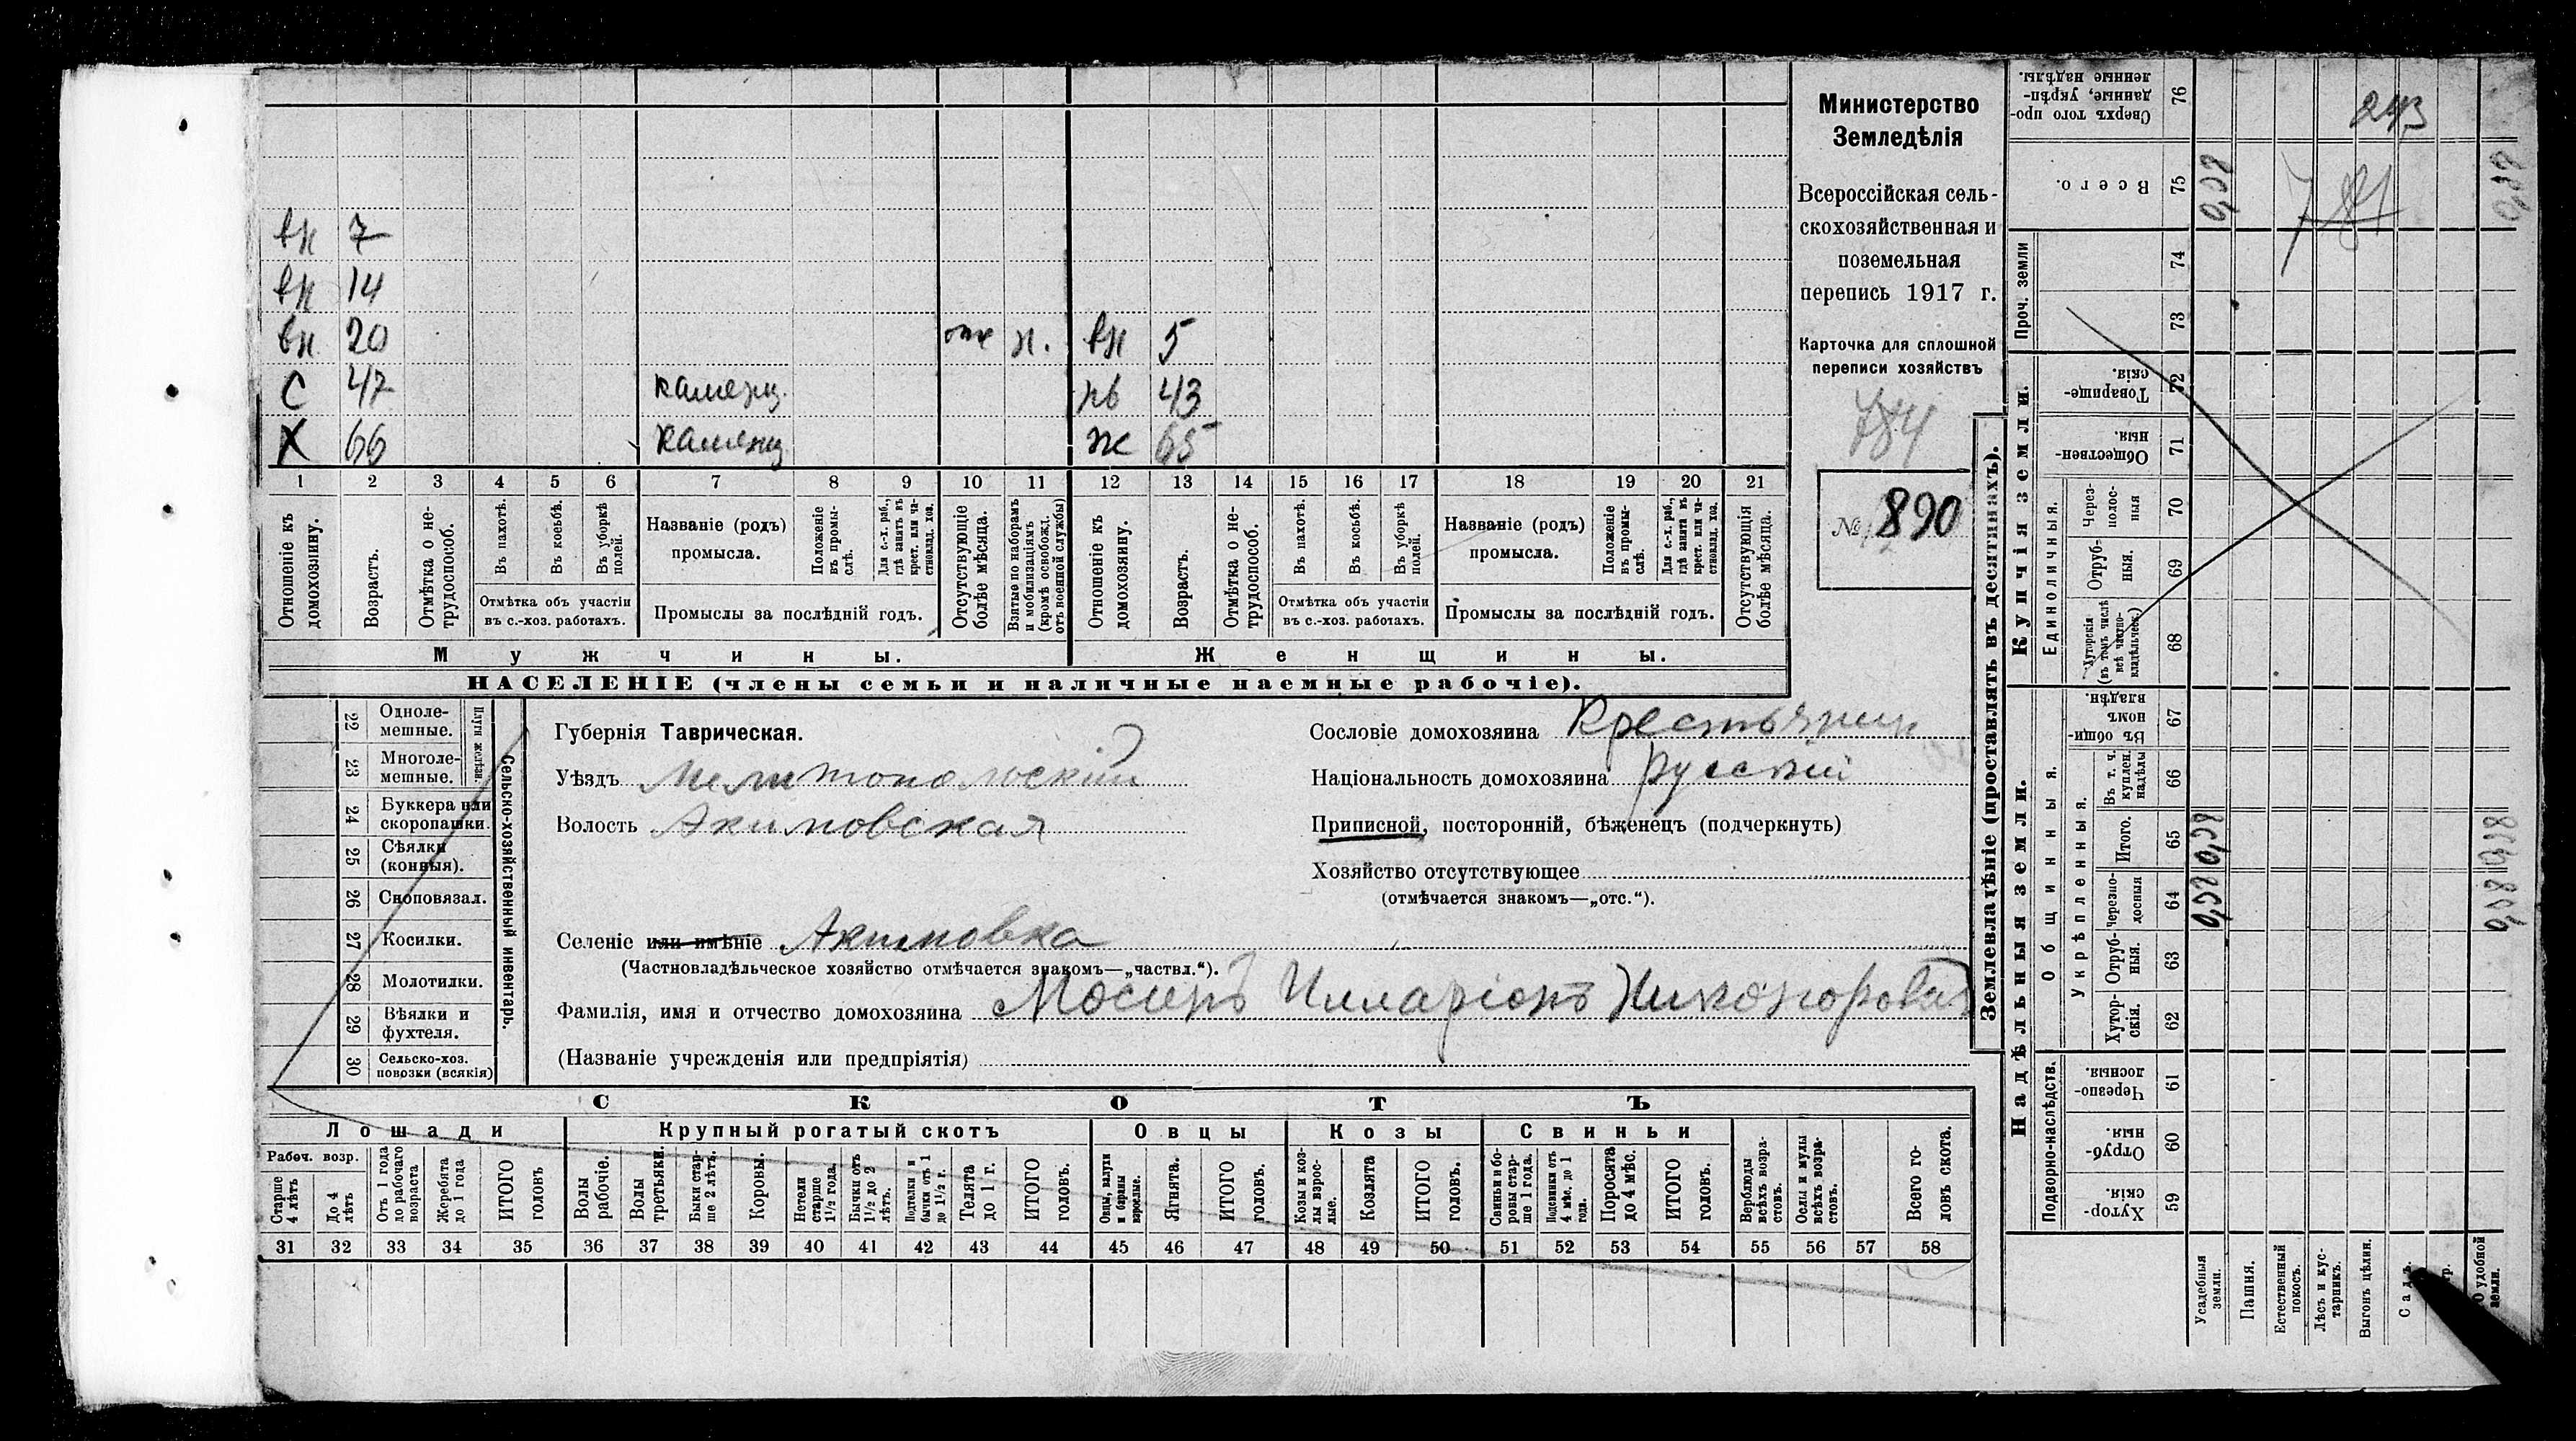 Министерство
Земледѣлія
Всероссійская сель-
скохозяйственная и
поземельная
перепись 1917 г.
Карточка для сплошной
переписи хозяйствъ
784
№ 890
вн 7
вн 14
вн 20 отх н. вн 5
С 47 каменщ. нв 43
Х 66 каменщ ж 65
1 2 3 4 5 6 7 8 9 10 11 12 13 14 15 16 17 18 19 20 21
Отношеніе къ домохозяину.
Возрастъ.
Отмѣтка о не-трудоспособ.
Въ пахотѣ.
Въ косьбѣ.
Въ уборкѣ полей.
Отмѣтка объ участіи
въ с.-хоз. работахъ.
Названіе (родъ)
промысла.
Положеніе въ промы-слѣ.
Для с.-х. раб., гдѣ занятъ въ крест. или ча-стновлад. хоз.
Промыслы за послѣдній годъ.
Отсутствующіе болѣе мѣсяца.
Взятые по наборамъ и мобилизаціямъ (кромѣ освобожд. отъ военной службы)
Отношеніе къ домохозяину.
Возрастъ.
Отмѣтка о не-трудоспособ.
Въ пахотѣ.
Въ косьбѣ.
Въ уборкѣ полей.
Отмѣтка объ участіи
въ с.-хоз. работахъ.
Названіе (родъ)
промысла.
Положеніе въ промы-слѣ.
Для с.-х. раб., гдѣ занята въ крест. или ча-стновлад. хоз.
Промыслы за послѣдній годъ.
Отсутствующія болѣе мѣсяца.
Мужчины. Женщины.
НАСЕЛЕНІЕ (члены семьи и наличные наемные рабочіе).
Сельско-хозяйственный инвентарь.
22 Одноле-мешные.
23 Многоле-мешные.
24 Буккера или скоропашки.
25 Сѣялки (конныя).
26 Сноповязал.
27 Косилки.
28 Молотилки.
29 Вѣялки и фухтеля.
30 Сельско-хоз. повозки (всякія)
Губернія Таврическая.
Уѣздъ Мелитопольскій
Волость Акимовская
Сословіе домохозяина Крестьянин
Національность домохозяина русскій
Приписной, посторонній, бѣженецъ (подчеркнуть)
Хозяйство отсутствующее
(отмѣчается знакомъ—„отс.“).
Селеніе или имѣніе Акимовка
(Частновладѣльческое хозяйство отмѣчается знакомъ—„частвл.“).
Фамилія, имя и отчество домохозяина Илларіонъ
(Названіе учрежденія или предпріятія)
СКОТЪ
Лошади Крупный рогатый скотъ Овцы Козы Свиньи
Рабоч. возр.
Старше 4 лѣтъ
До 4 лѣтъ
Отъ 1 года до рабочаго возраста
Жеребята до 1 года
ИТОГО головъ
Волы рабочіе.
Волы третьяки.
Быки стар-ше 2 лѣтъ.
Коровы.
Нетели старше 1½ года.
Бычки отъ 1½ до 2 лѣтъ.
Подтелки и бычки отъ 1 до 1½ г.
Телята до 1 г.
ИТОГО головъ.
Овцы, валухи и бараны взрослые.
Ягнята.
ИТОГО головъ.
Козы и коз-лы взрос-лые.
Козлята
ИТОГО головъ.
Свиньи и бо-ровы стар-ше 1 года.
Подсвинки отъ 4 мѣс. до 1 года.
Поросята до 4 мѣс.
ИТОГО головъ.
Верблюды всѣхъ возра-стовъ.
Ослы и мулы всѣхъ возра-стовъ.
Всего го-ловъ скота.
31 32 33 34 35 36 37 38 39 40 41 42 43 44 45 46 47 48 49 50 51 52 53 54 55 56 57 58
Землевладѣніе (проставлять въ десятинахъ).
Надѣльныя земли. Купчія земли. Проч. земли
Подворно-наслѣдств.
Общинныя.
Укрѣпленныя.
Единоличныя.
59 Хутор-скія.
60 Отруб-ныя.
61 Черезпо-лосныя.
62 Хутор-скія.
63 Отруб-ныя.
64 Черезпо-лосныя
65 Итого.
66 Въ т. ч. куплен. надѣлы
67 Въ общин-номъ владѣн.
68 Хуторскія (въ томъ числѣ всѣ частно-владѣльческ.)
69 Отруб-ныя.
70 Через-полос-ныя
71 Обществен-ныя.
72 Товарище-скія.
73
74
75 Всего.
76 Сверхъ того про-данные, укрѣп-ленные надѣлы.
243
781
Усадебныя земли.
Пашня.
Естественный покосъ.
Лѣсъ и кус-тарникъ.
Выгонъ цѣлин.
Садъ.
удобной земли.